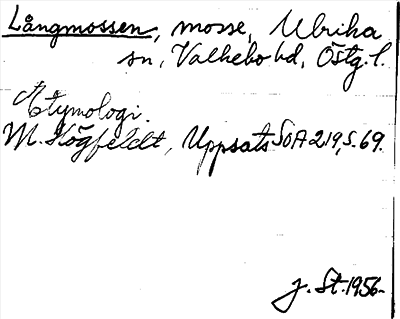 Långmossen, mosse, Ulrika
sn, Valkebo hd, Östg. l.
Etymologi.
M. Högfeldt, Uppsats SOA 219, s. 69.
J. St. 1956